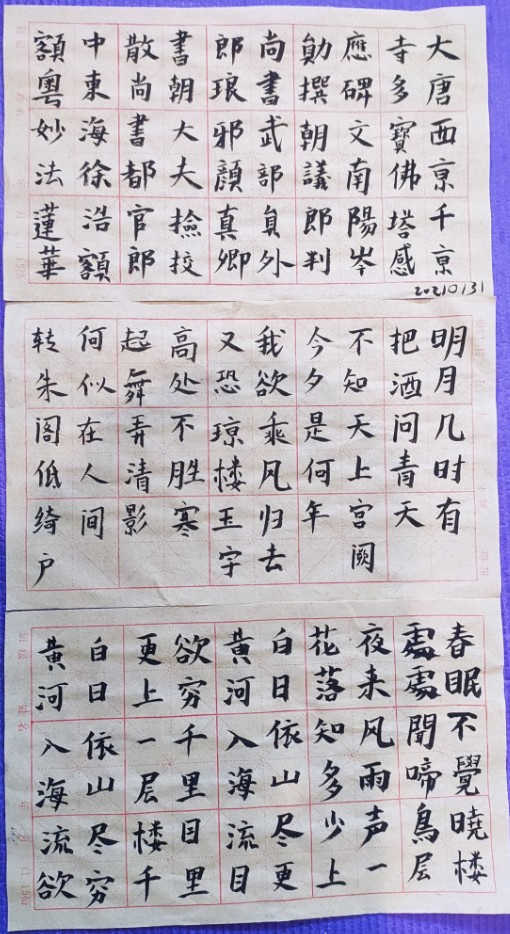 大唐西亰千亰
寺多寶佛塔感
應碑文南陽岑
勛撰朝議郎判
尚書武部員外
郎琅邪顏真卿
書朝大夫撿挍
散尚書都官郎
中東海徐浩額
額粵妙法蓮華
20210131
明月几时有
把酒问青天
不知天上宫阙
今夕是何年
我欲乘风归去
又恐琼楼玉宇
高处不胜寒
起舞弄清影
何似在人间
转朱阁低绮户
春眠不覺曉楼
處處聞啼鳥层
夜来风雨声一
花落知多少上
白日依山尽更
黄河入海流目
欲穷千里目里
更上一层楼千
白日依山尽穷
黄河入海流欲